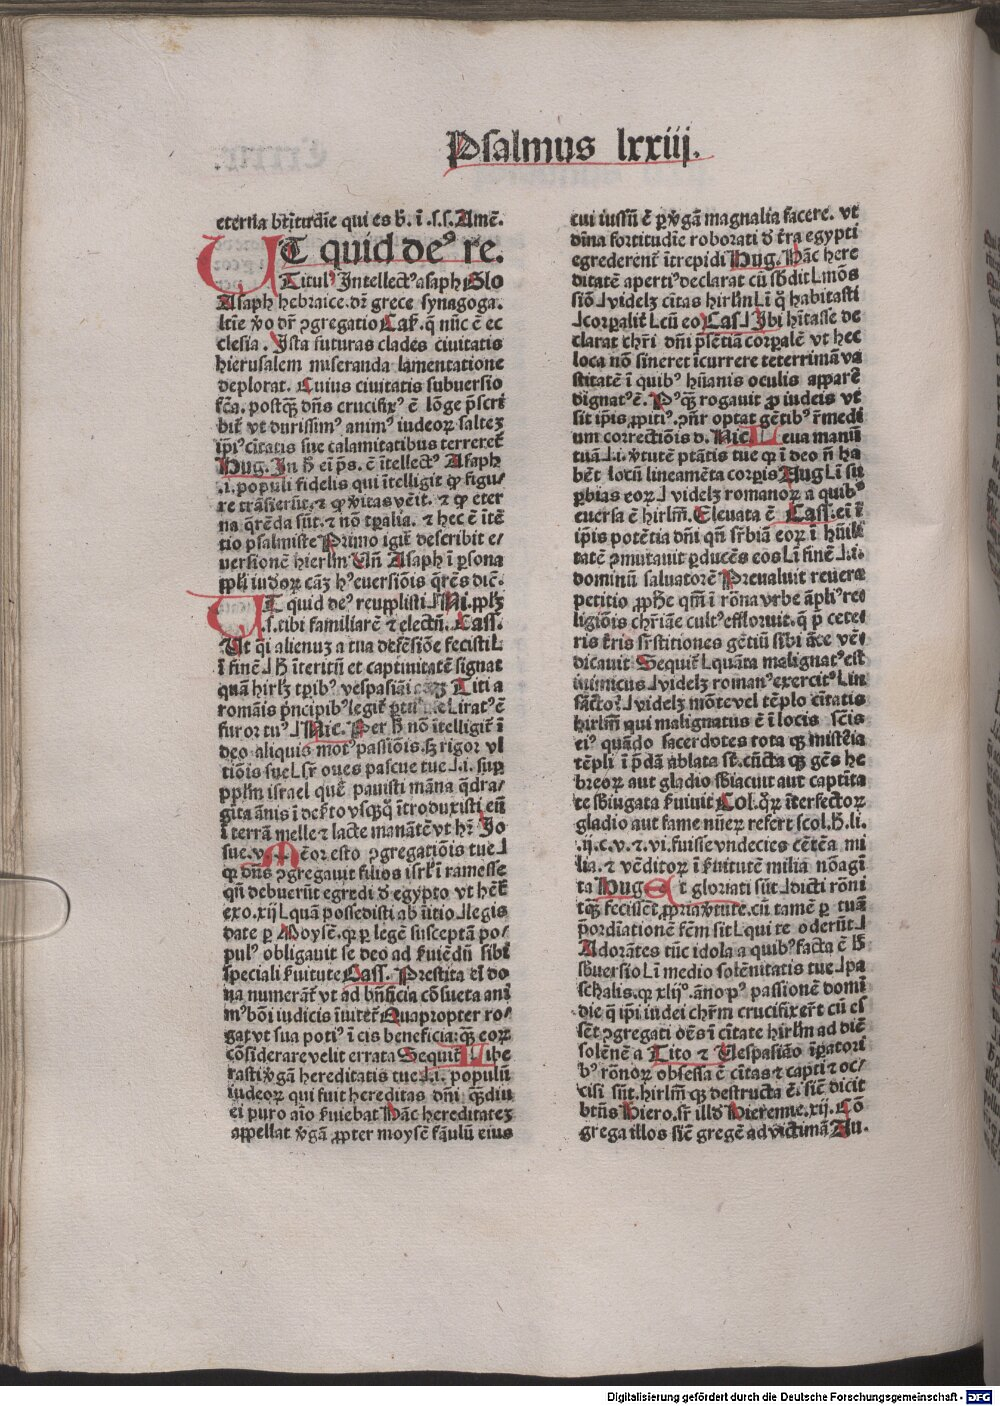 Psalmus lxxiij.
eterna bt̄itudīe qui es b̄. ī .s.s. Amē.
UT quid deꝰ re.
Titulꝰ Intellectꝰ asaph Glo
Asaph hebraice. dr̄ grece synagoga.
ltīe v̄o dr̄ ꝯgregatio Cass. q̄ nūc ē ec
clesia. Ista futuras clades ciuitatis
hierusalem miseranda lamentatione
deplorat. Cuius ciuitatis subuersio
fc̄a. postq̄ dn̄s crucifixꝰ ē lōge p̄scri
bit̄ vt durissimꝰ animꝰ iudeoꝝ saltez
ip̄iꝰ cītatis sue calamitatibus terreret̄
Hug. In h̄ ei p̄s. ē ītellectꝰ Asaph
.i. populi fidelis qui ītelligit ꝙ figu/
re trāsierūt. ⁊ ꝙ v̄itas vēit. ⁊ ꝙ eter
na q̄rēda sūt. ⁊ nō tꝑalia. ⁊ hec ē ītē
tio psalmiste Primo igit̄ describit e/
uersionē hierlm̄ Un̄ Asaph ī ꝑsona
ppl̄i iudoꝝ cāz hꝰ euersiōis q̄rēs dic̄.
UT quid deꝰ repplisti Ni. pplz̄
.s. tibi familiarē ⁊ electū. Cass.
Ut q̄i alienuz a tua defēsiōe fecisti
ī finē h̄ īteritū et captiuitatē signat
quā hirlz̄ tꝑibꝰ vespasiāi Titi a
romāis p̄ncipibꝰ legit̄ iratꝰ ē
furor tuꝰ Nic. Per h̄ nō ītelligit̄ ī
deo aliquis motꝰ passiōis. sꝫ rigor vl
tiōis sue sr̄ oues pascue tue .i. suꝑ
pplm̄ israel quē pauisti māna q̄dra/
gita ānis ī dekto vsqꝫqꝫ ītroduxisti eū
ī terrā melle ⁊ lacte manātē vt hr̄ Jo
sue. v. Mēor esto ꝯgregatiōis tue
ꝙ dn̄s ꝯgregauit filios isrl̄ ī ramesse
qn̄ debuerūt egredi d̄ egypto vt hēt̄
exo. xij quā possedisti ab ītio legis
date ꝑ Moysē. ꝙ ꝑ legē susceptā po/
pulꝰ obligauit se deo ad ẜuiēdū sibi
speciali ẜuitute Cass. Prestita eī do
na numerat̄ vt ad bn̄ficia cōsueta ani
mꝰ bōi iudicis īuitet̄ Quapropter ro/
gat vt sua potiꝰ ī cis beneficia: qꝫ eoꝝ
cōsiderare velit errata Sequit̄ Libe
rasti v̄gā hereditatis tue .i. populū
iudeoꝝ qui fuit hereditas dn̄i qꝫdiu
ei puro aīo ẜuiebat Hāc hereditatez
appellat v̄gā ꝓpter moysē fāulū eius
cui iussū ē ꝑ v̄gā magnalia facere. vt
dīna fortitudīe roborati d̄ tr̄a egypti
egrederent̄ ītrepidi Hug. Hāc here
ditatē apertiꝰ declarat cū sb̄dit mōs
siō videlꝫ cītas hirlm̄ ī q̄ habitasti
corꝑalit̄ cū eo Cass. Ibi hītasse de
clarat chr̄i dn̄i p̄sētiā corꝑalē vt hec
loca nō sineret īcurrere teterrimā va
stitatē ī quibꝰ hūanis oculis apparē
dignatꝰ ē. Pꝰqꝫ rogauit ꝓ iudeis vt
sit ip̄is ꝓpitiꝰ. ꝯn̄r optat gētibꝰ r̄medi
um correctiōis d. Nic. Leua manū
tuā .i. v̄tutē ptātis tue ꝙ ī deo n̄ ha
bēt locū lineamēta corꝑis Aug ī su
ꝑbias eoꝝ videlꝫ romanoꝝ a quibꝰ
euersa ē hirlm̄. Eleuata ē Cass. ei ī
ip̄is potētia dn̄i qn̄ sr̄biā eoꝝ ī hūili
tatē ꝯmutauit ꝑducēs eos ī finē .i.
dominū saluatorē Preualuit reuera
petitio ꝓphe qm̄ ī rōna vrbe āpliꝰ re
ligiōis chr̄iāe cultꝰ effloruit. q̄ p̄ cete
ris tr̄is sr̄stitiones gētiū sibi āte vē
dicauit Sequit̄ quāta malignatꝰ est
inimicus videlꝫ romanꝰ exercitꝰ in
sācto videlꝫ mōte vel tēplo cītatis
hirlm̄ qui malignatus ē ī locis sc̄is
eiꝰ quādo sacerdotes tota qꝫ mist̄ia
tēpli ī p̄dā ablata st̄. cūcta qꝫ gēs he
breoꝝ aut gladio sb̄iacuit aut captīta
te sb̄iugata ẜuiuit Col. q̄ꝝ īterfectoꝝ
gladio aut fame nūeꝝ refert scol. h̄. li.
.ij. c. v. ⁊. vi. fuisse vndecies cētēa mi
lia. ⁊ vēditoꝝ ī ẜuitutē milia nōagī
ta Hug Et gloriati sūt dicti rōni
tqꝫ fecissēt ꝓpria v̄tute. cū tamē ꝑ tuā
p̄ordīationē fc̄m sit qui te oderūt
Adorātes tūc idola a quibꝰ facta ē h̄
sb̄uersio ī medio solēnitatis tue pa
schalis. ꝙ xlijº. āno pꝰ passionē domī
die q̄ ip̄i iudei chr̄m crucifixer̄t cū es
sēt ꝯgregati oēs ī cītate hirlm̄ ad diē
solēnē a Tito ⁊ Uespasiāo īꝑatori
bꝰ rōnoꝝ obsessa ē cītas ⁊ capti ⁊ oc/
cisi sūt. hirlm̄ qꝫ destructa ē. sic̄ dicit
btūs Hiero. sr̄ illd̄ Hieremie. xij. Cō
grega illos sic̄ gregē ad victimā Au.
Digitalisierung gefördert durch die Deutsche Forschungsgemeinschaft - DFG